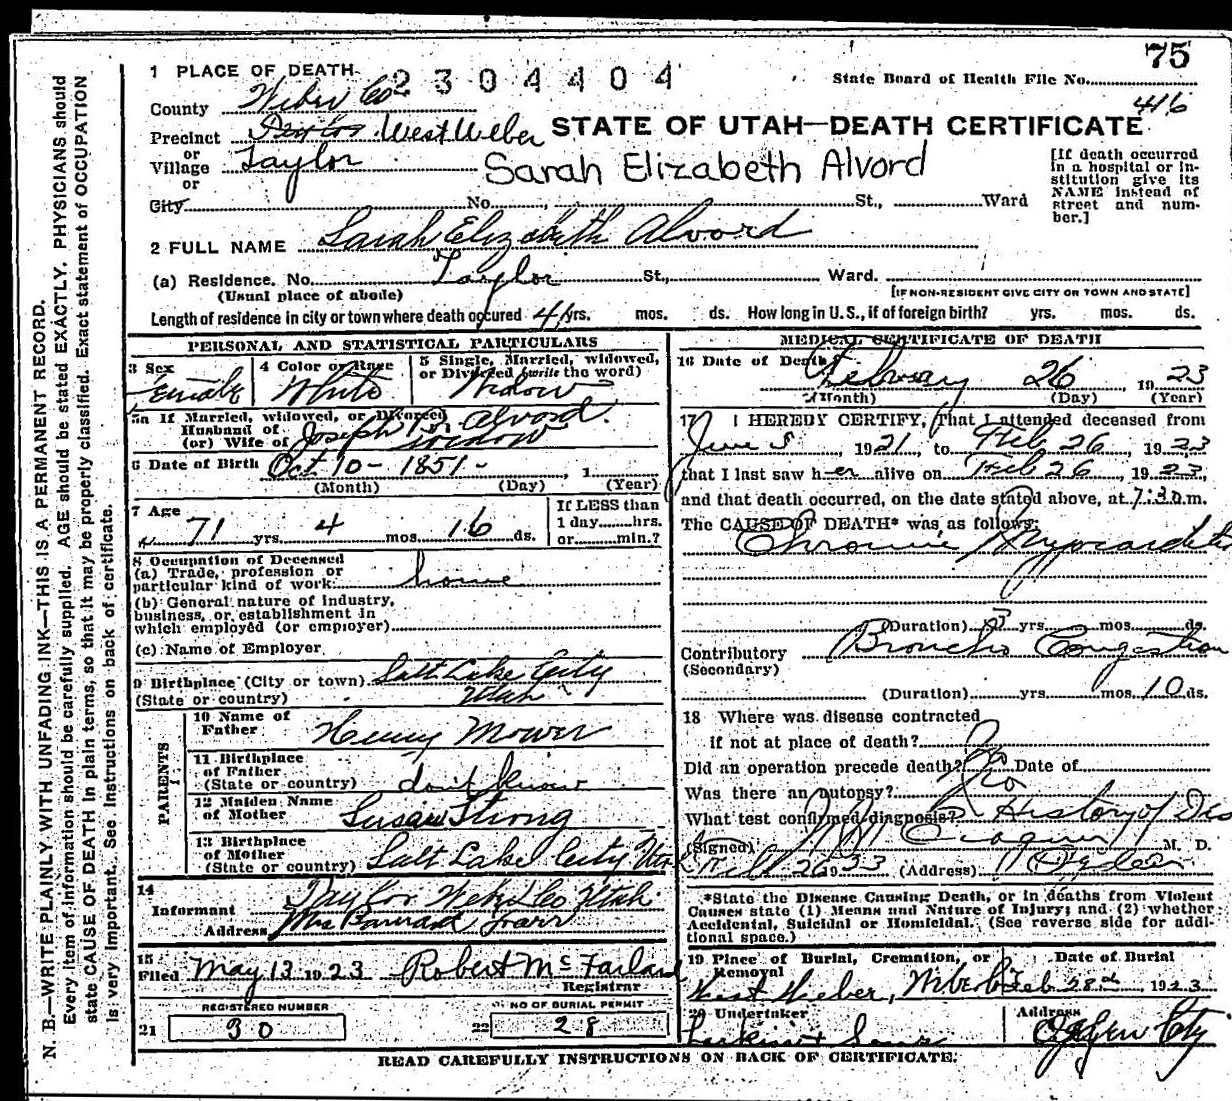 75
1 PLACE OF DEATH 2304404 State Board of Health File No.
416
County Weber Co
Precinct Taylor West Weber STATE OF UTAH—DEATH CERTIFICATE
or
Village Taylor Sarah Elizabeth Alvord
or
City No. St., Ward
[If death occurred
in a hospital or in-
stitution give its
NAME instead of
street and num-
ber.]
2 FULL NAME Sarah Elizabeth Alvord
(a) Residence. No. Taylor St., Ward.
(Usual place of abode) [IF NON-RESIDENT GIVE CITY OR TOWN AND STATE]
Length of residence in city or town where death occured 41 yrs. mos. ds. How long in U. S., if of foreign birth? yrs. mos. ds.
PERSONAL AND STATISTICAL PARTICULARS
3 Sex Female
4 Color or Race White
5 Single, Married, widowed,
or Divorced (write the word)
Widow
5a If Married, widowed, or Divorced
Husband of Joseph Alvord
(or) Wife of widow
6 Date of Birth Oct 10 - 1851 - , 1
(Month) (Day) (Year)
7 Age
71 yrs. 4 mos. 16 ds.
If LESS than
1 day hrs.
or min.?
8 Occupation of Deceased
(a) Trade, profession or
particular kind of work: home
(b) General nature of industry,
business, or establishment in
which employed (or employer)
(c) Name of Employer
9 Birthplace (City or town) Salt Lake City
(State or country) Utah
PARENTS
10 Name of
Father Henry Mower
11 Birthplace
of Father
(State or country) don't know
12 Maiden Name
of Mother Susan Strong
13 Birthplace
of Mother
(State or country) Salt Lake City Uta
14 Taylor Weber Co Utah
Informant
Address Mrs Farr
15
Filed May 13 1923 Robert McFarland
Registrar
REGISTERED NUMBER
21 30
NO OF BURIAL PERMIT
22 28
MEDICAL CERTIFICATE OF DEATH
16 Date of Death February 26, 1923
(Month) (Day) (Year)
17 I HEREBY CERTIFY, That I attended deceased from
June 5, 1921, to Feb 26, 1923
that I last saw her alive on Feb 26, 1923,
and that death occurred, on the date stated above, at 7:30 a.m.
The CAUSE OF DEATH* was as follows:
Chronic Myocarditis
(Duration) 3 yrs. mos. ds.
Contributory Broncho Congestion
(Secondary)
(Duration) yrs. mos. 10 ds.
18 Where was disease contracted
if not at place of death? ?
Did an operation precede death? No Date of
Was there an autopsy? No
What test confirmed diagnosis? History of Dis
(Signed) M. D.
Feb 26 1923 (Address) Ogden
*State the Disease Causing Death, or in deaths from Violent
Causes state (1) Means and Nature of Injury; and (2) whether
Accidental, Suicidal or Homicidal. (See reverse side for addi-
tional space.)
19 Place of Burial, Cremation, or Date of Burial
Removal
West Weber, Weber Co Feb 28th 1923
20 Undertaker Address
Larkin & Sons Ogden City
READ CAREFULLY INSTRUCTIONS ON BACK OF CERTIFICATE.
N. B.—WRITE PLAINLY WITH UNFADING INK—THIS IS A PERMANENT RECORD.
Every item of information should be carefully supplied. AGE should be stated EXACTLY. PHYSICIANS should
state CAUSE OF DEATH in plain terms, so that it may be properly classified. Exact statement of OCCUPATION
is very important. See instructions on back of certificate.